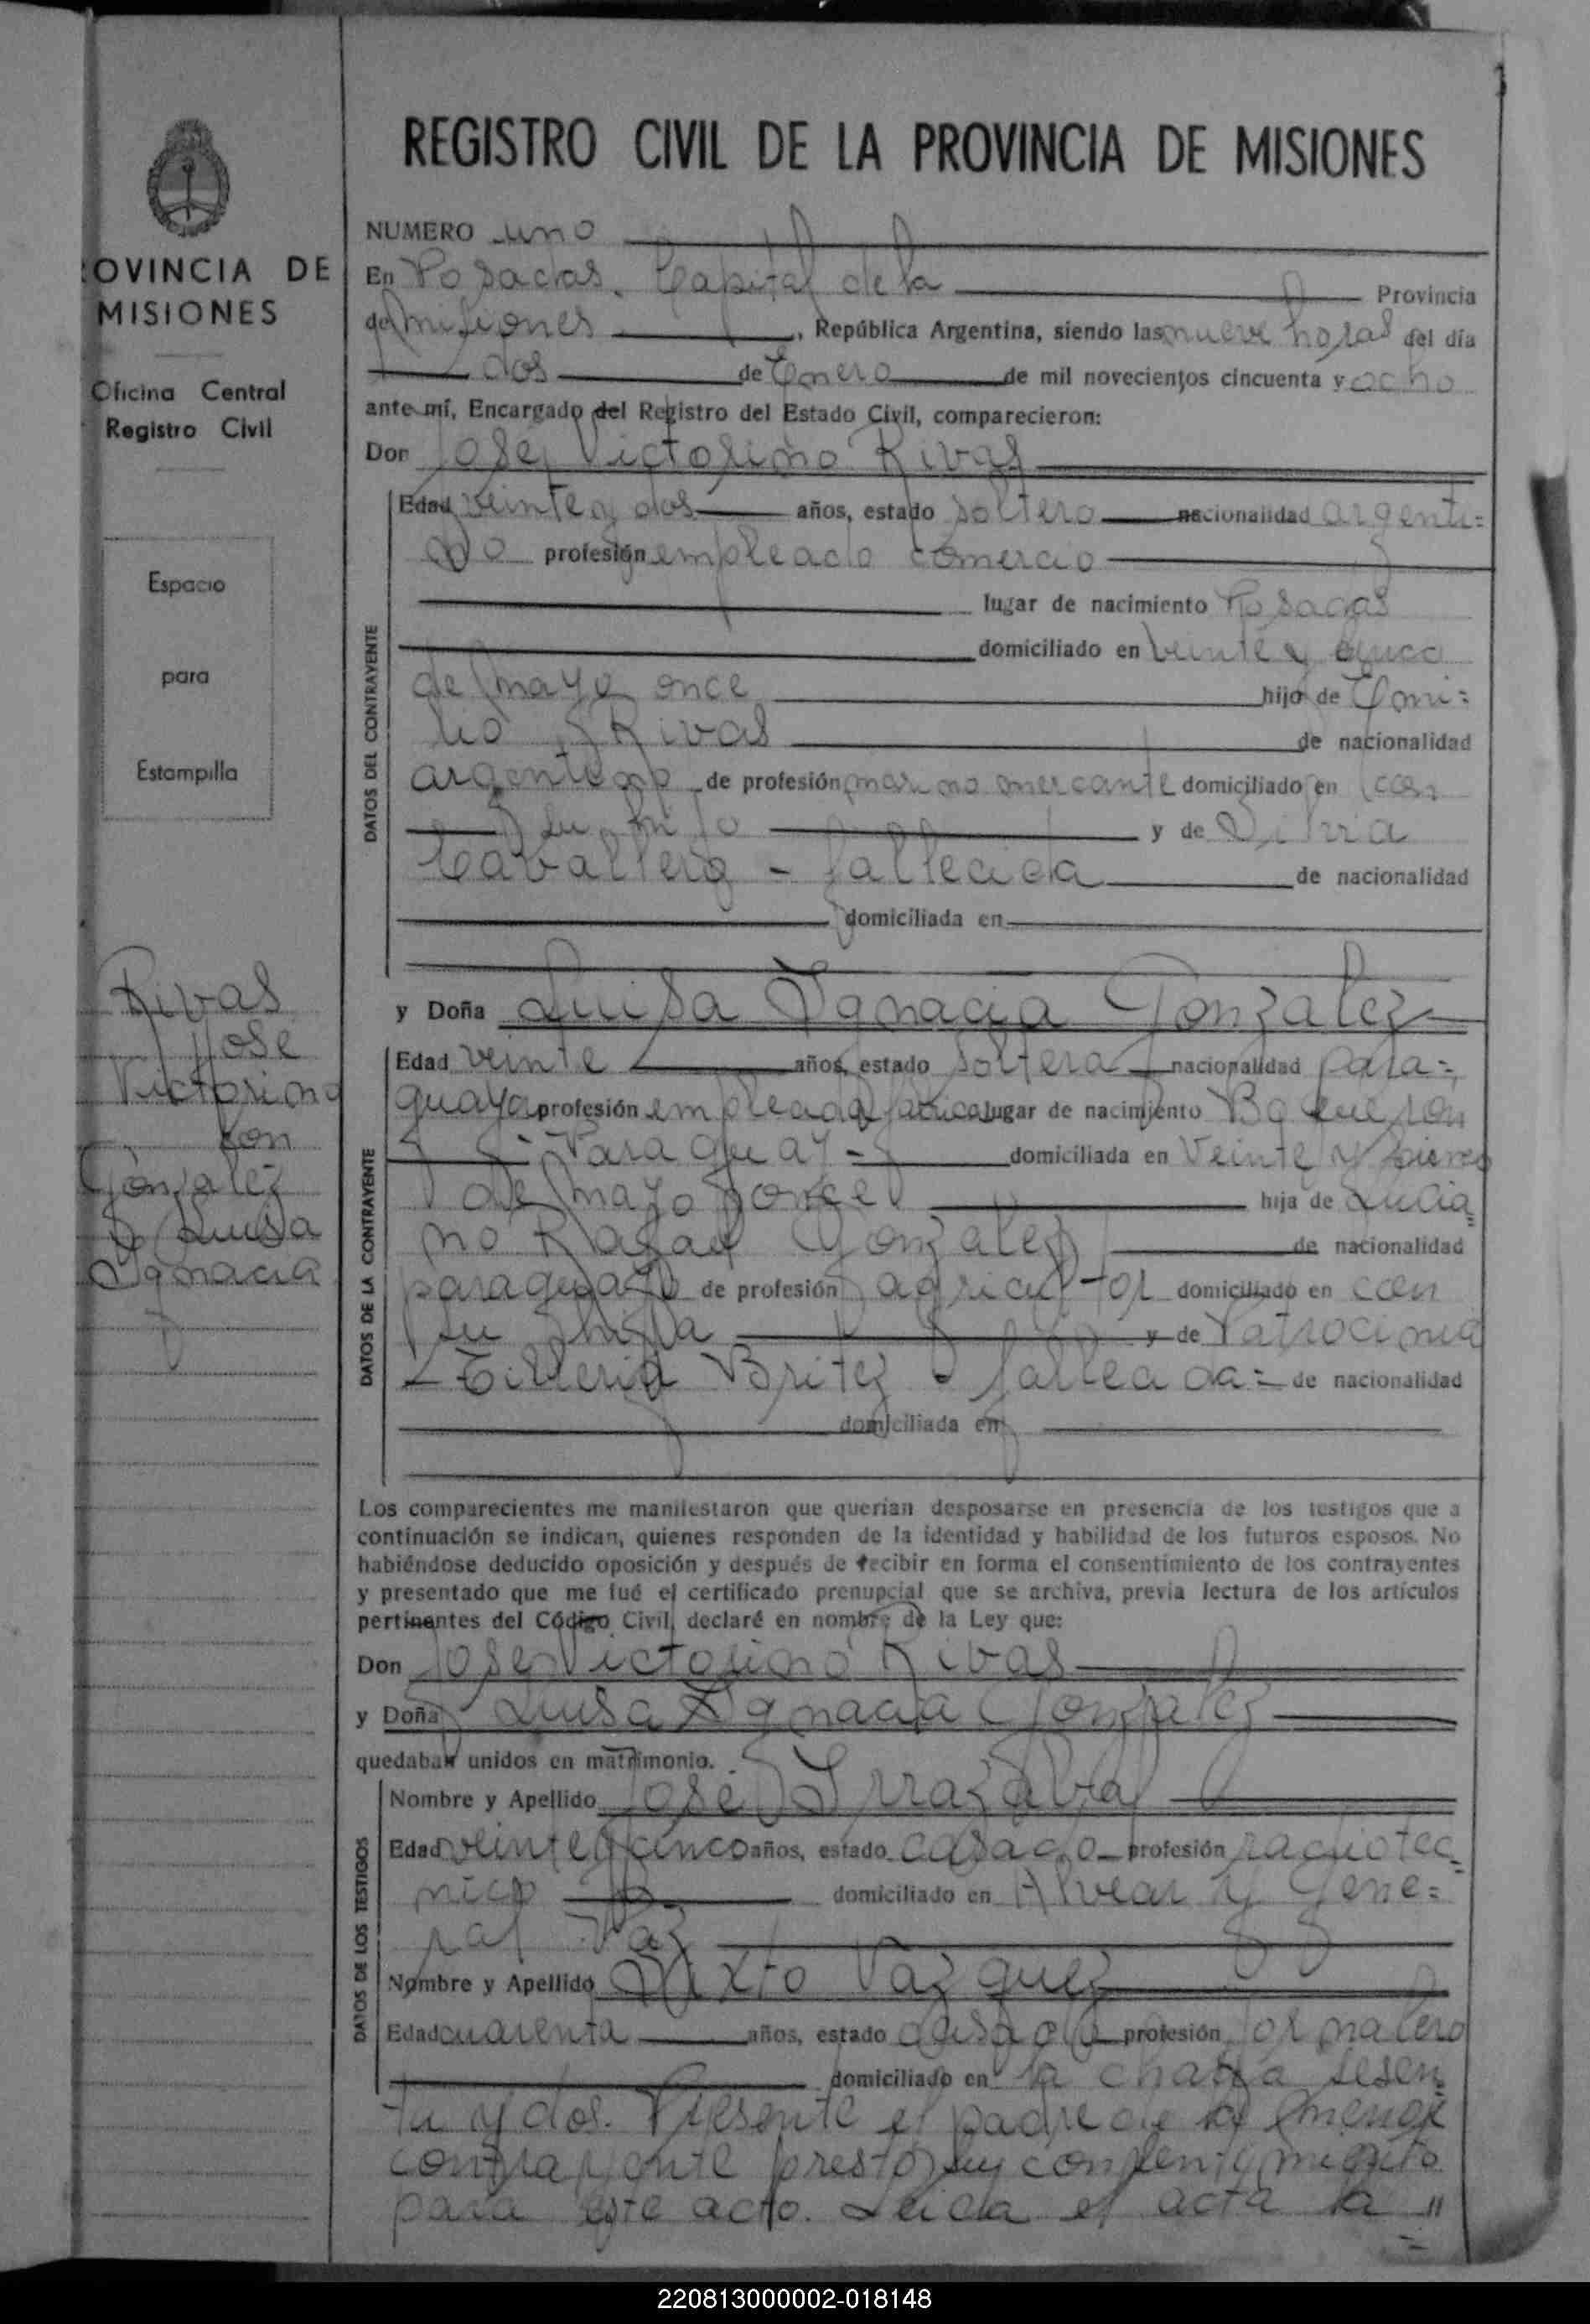 REGISTRO CIVIL DE LA PROVINCIA DE MISIONES
OVINCIA DE
MISIONES
Oficina Central
Registro Civil
Espacio
para
Estampilla
Rivas
Jose
Victorino
con
Gonzalez
Luisa
Ygnacia
NUMERO uno
En Posadas. Capital de la Provincia
de Misiones, República Argentina, siendo las nueve horas del día
dos de Enero de mil novecientos cincuenta y ocho
ante mí, Encargado del Registro del Estado Civil, comparecieron:
Don Jose Victorino Rivas
DATOS DEL CONTRAYENTE
Edad veinte y dos años, estado soltero nacionalidad argenti=
no profesión empleado comercio
lugar de nacimiento Posadas
domiciliado en veinte y cinco
de mayo once hijo de Emi=
lio Rivas de nacionalidad
argentino de profesión marino mercante domiciliado en con
su hijo y de
Cavallero - fallecida de nacionalidad
domiciliada en
y Doña Luisa Ygnacia Gonzalez
DATOS DE LA CONTRAYENTE
Edad veinte años, estado soltera nacionalidad para=
guaya profesión empleada fabrica lugar de nacimiento Boqueron
- Paraguay - domiciliada en Veinte y cinco
de mayo once hija de Lucia=
no Rafael Gonzalez de nacionalidad
paraguayo de profesión agricultor domiciliado en con
su hija y de Patrocinia
Britez - fallecida = de nacionalidad
domiciliada en
Los comparecientes me manifestaron que querían desposarse en presencia de los testigos que a
continuación se indican, quienes responden de la identidad y habilidad de los futuros esposos. No
habiéndose deducido oposición y después de recibir en forma el consentimiento de los contrayentes
y presentado que me fué el certificado prenupcial que se archiva, previa lectura de los artículos
pertinentes del Código Civil, declaré en nombre de la Ley que:
Don Jose Victorino Rivas
y Doña Luisa Ygnacia Gonzalez
quedaban unidos en matrimonio.
DATOS DE LOS TESTIGOS
Nombre y Apellido José Irrazabal
Edad veinte y cinco años, estado casado profesión radiotec=
nico domiciliado en Alvear y Gene=
ral Paz
Nombre y Apellido Sixto Vazquez
Edad cuarenta años, estado casado profesión jornalero
domiciliado en la chacra sesen
ta y dos. Presente el padre de la menor
contrayente prestó su consentimiento
para este acto. Leida el acta la "
220813000002-018148